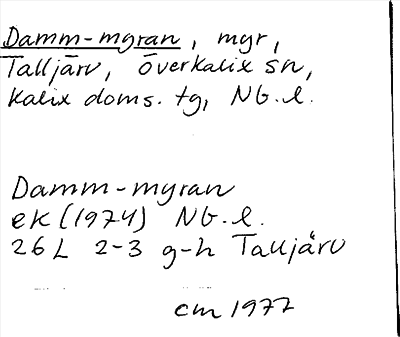 Damm-myran, myr,
Talljärv, överkalix sn,
Kalix doms. tg, Nb. l.
Damm-myran
ek (1974) Nb. l.
26 L 2-3 g-h Talljärv
cm 1977